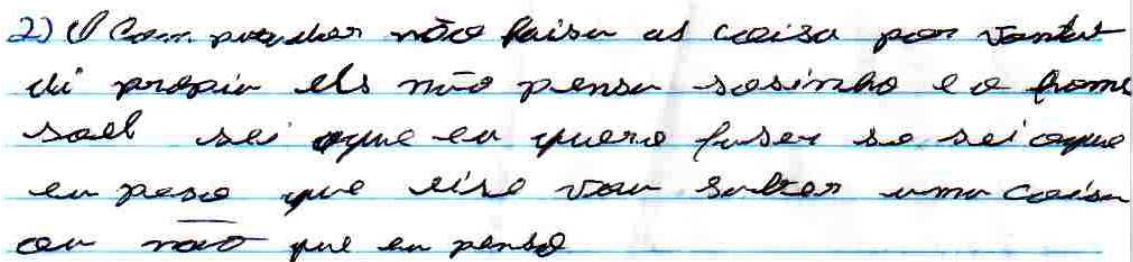 2) O Computador não faisu as coisa por vontat
di propiu els não pensu sosinho e o home
sael sei oque eu quero fuser se sei oque
eu peso que vou uma coisa
ou não que eu penso